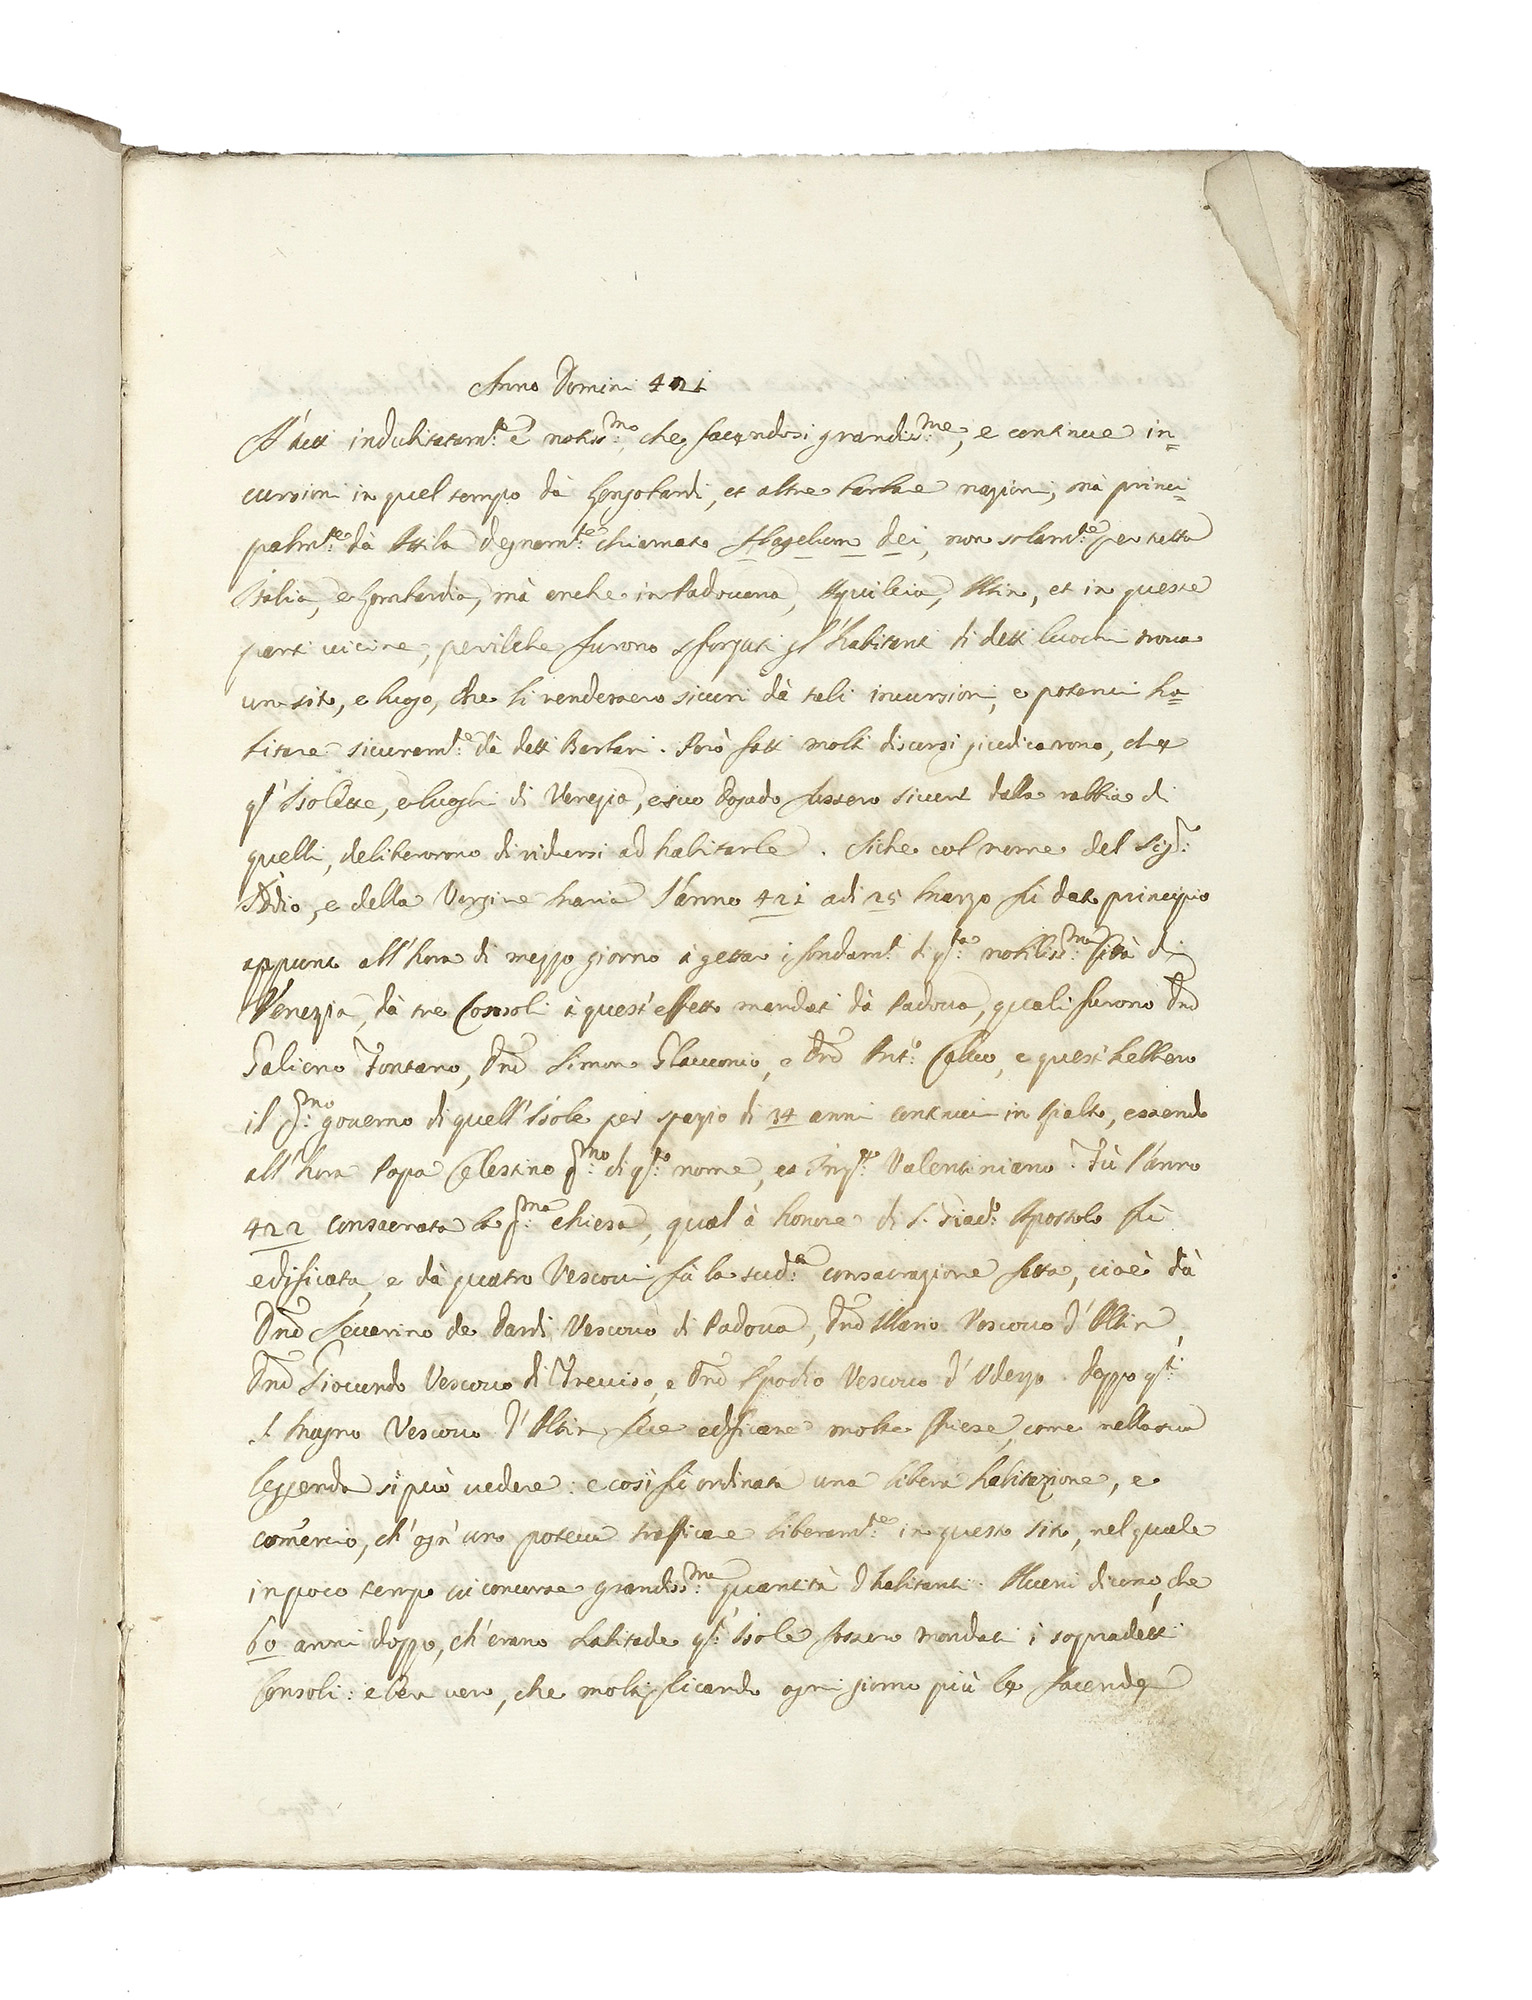 Anno Domini 421
A' tutti indubitatam.te è notiss.mo, che facendosi grandis.me, e continue in=
cursioni in quel tempo dà Longobardi, et altre barbare nazioni, mà princi=
palm.te dà Attila degnam.te chiamato flagelum dei, non solam.te per tutta
Italia, e Lombardia, mà anche in Padovana, Aquileia, Altin, et in queste
parti vicine, perilche furono sforzati gl'habitanti di detti luochi trovar
un sito, e luogo, che li rendessero sicuri dà tali incursioni, e potervi ha=
bitare sicuram.te dà detti Barbari. Però fatti molti discorsi giudicarono, che
q.st' Isolette, e luoghi di Venezia, e suo Dogado fossero sicuri dalla rabbia di
quelli, deliberorono di ridursi ad habitarle. Siche col nome del Sig.r
Iddio, e della Vergine Maria l'anno 421 adi 25 Marzo fù dato principio
appunto all'hora di mezzo giorno à gettar i fondam.ti di q.sta nobiliss.ma Città di
Venezia, dà tre Consoli à quest'effetto mandati dà Padova, quali furono Dnò
Galieno Fontano, Dnò Simon Glauconio, e Dnò Ant.o Calvo, e questi hebbero
il p.mo governo di quell'Isole per spazio di 34 anni continui in Rialto, essendo
all'hora Papa Celestino p.mo di q.sto nome, et Imp.re Valentiniano. Fù l'anno
422 consacrata la p.ma chiesa, qual à honore di S. Giac.o Apostolo fù
edificata, e dà quatro Vescovi fù la sud.a consacrazione fatta, cioè dà
Dnò Severino de Dardi Vescovo di Padova, Dnò Illario Vescovo d'Altin,
Dnò Giocundo Vescovo di Treviso, e Dnò Epodio Vescovo d'Uderzo. Doppo q.sti
S. Magno Vescovo d'Altin fece edificare molte Chiese, come nella sua
leggenda si può vedere: e così fù ordinata una libera habitazione, e
comercio, ch'ogn'uno poteva trafficare liberam.te in questo sito, nel quale
in poco tempo vi concorse grandiss.ma quantità d'habitanti. Alcuni dicono, che
60 anni doppo, ch'erano habitade q.st' Isole fossero mandati i sopradetti
Consoli: e ben vero, che moltiplicando ogni giorno più le facende